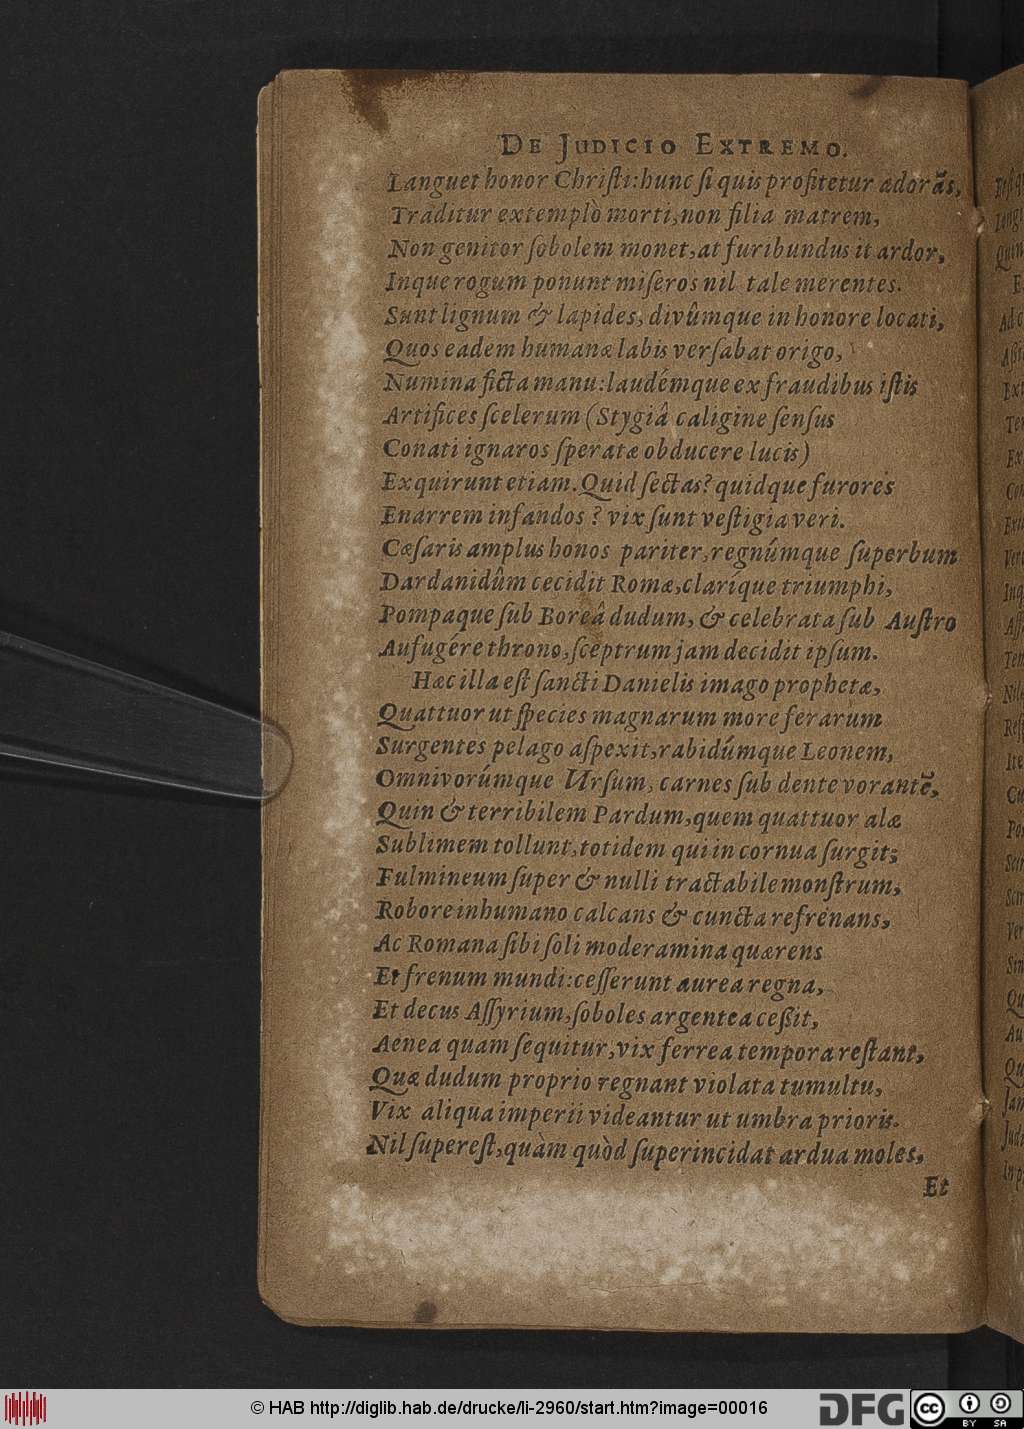 DE JUDICIO EXTREMO.
Languet honor Chriſti: hunc ſi quis profitetur adorãs,
Traditur extemplò morti, non filia matrem,
Non genitor ſobolem monet, at furibundus it ardor,
Inque rogum ponunt miſeros nil tale merentes.
Sunt lignum & lapides, divûmque in honore locati,
Quos eadem humanæ labis verſabat origo,
Numina ficta manu: laudémque ex fraudibus iſtis
Artifices ſcelerum (Stygiâ caligine ſenſus
Conati ignaros ſperatæ obducere lucis)
Exquirunt etiam. Quid ſectas? quidque furores
Enarrem infandos? vix ſunt veſtigia veri.
Cæſaris amplus honos pariter, regnúmque ſuperbum
Dardanidûm cecidit Romæ, claríque triumphi,
Pompaque ſub Boreâ dudum, & celebrata ſub Auſtro
Aufugére throno, ſceptrum jam decidit ipſum.
Hæc illa eſt ſancti Danielis imago prophetæ,
Quattuor ut ſpecies magnarum more ferarum
Surgentes pelago aſpexit, rabidúmque Leonem,
Omnivorúmque Urſum, carnes ſub dente vorantẽ,
Quin & terribilem Pardum, quem quattuor alæ
Sublimem tollunt, totidem qui in cornua ſurgit;
Fulmineum ſuper & nulli tractabile monſtrum,
Robore inhumano calcans & cuncta refrenans,
Ac Romana ſibi ſoli moderamina quærens
Et frenum mundi: ceſſerunt aurea regna,
Et decus Aſſyrium, ſoboles argentea ceßit,
Aenea quam ſequitur, vix ferrea tempora reſtant,
Quæ dudum proprio regnant violata tumultu,
Vix aliqua imperii videantur ut umbra prioris.
Nil ſupereſt, quàm quòd ſuperincidat ardua moles,
Et
© HAB http://diglib.hab.de/drucke/li-2960/start.htm?image=00016
DFG
cc BY SA